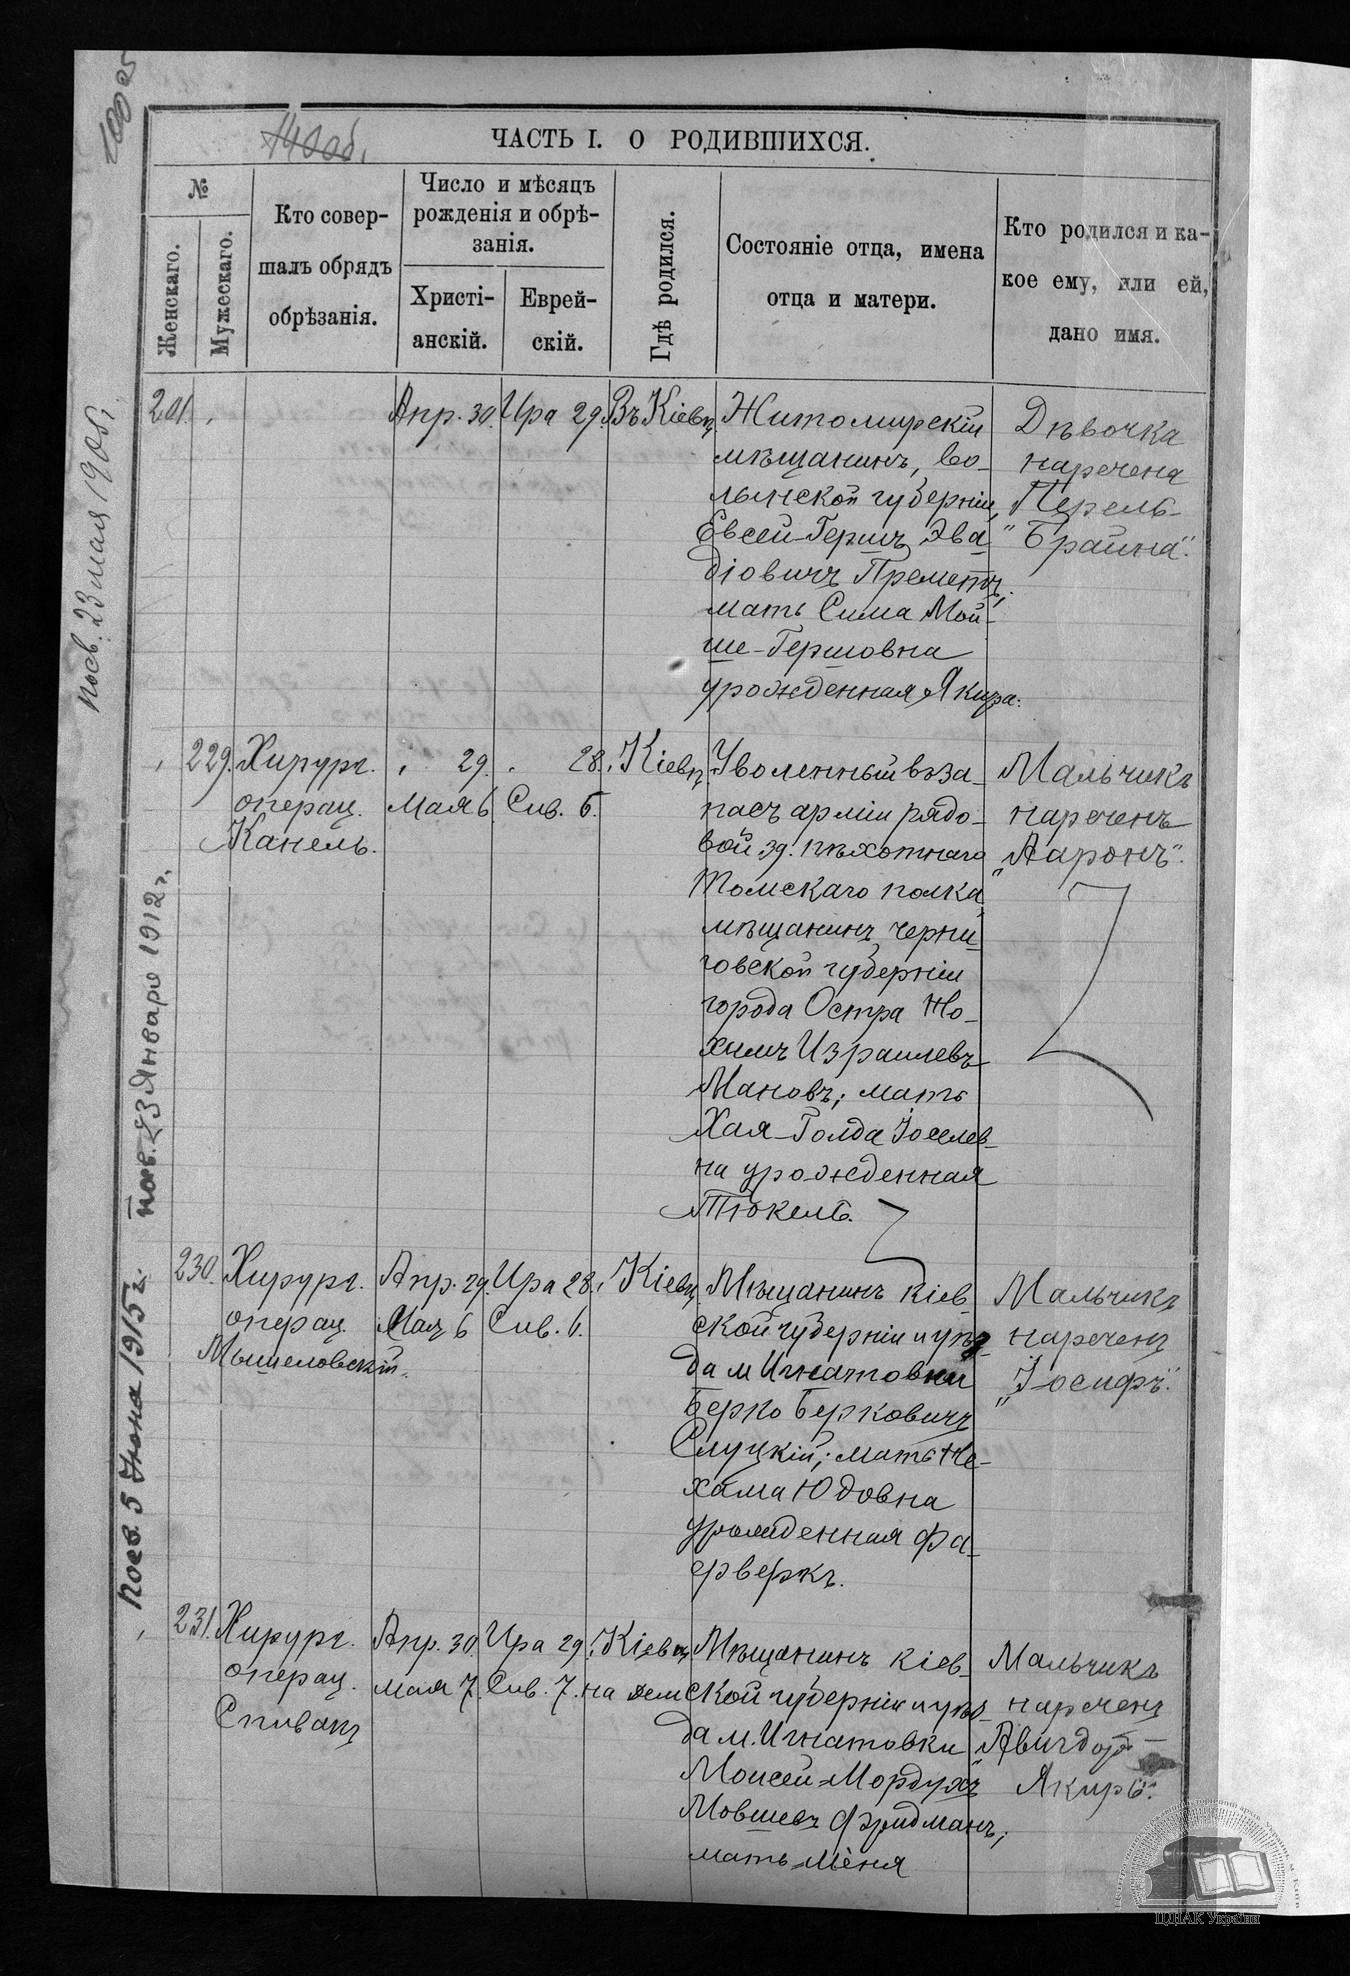 ЧАСТЬ I. О РОДИВШИХСЯ.
№
Женскаго.
Мужескаго.
Кто совер-
шалъ обрядъ
обрѣзанія.
Число и мѣсяцъ
рожденія и обрѣ-
занія.
Христі-
анскій.
Еврей-
скій.
Гдѣ родился.
Состояніе отца, имена
отца и матери.
Кто родился и ка-
кое ему, или ей,
дано имя.
201.
Апр. 30.
Ира 29.
Въ Кіевѣ
Житомирскій
мѣщанинъ, Во-
лынской губерніи,
Евсей-Гершъ Эва
діовичъ Преметъ,
мать Сима Мой-
ше-Гершовна
урожденная Якира.
Дѣвочка
наречена
Перель-
"Брайна".
229.
Хирург.
операц.
Канель.
" 29.
Мая 6
" 28.
Сив. 6.
Кіевѣ
Уволенный въ за-
пасъ арміи рядо-
вой 39. пѣхотнаго
Томскаго полка
мѣщанинъ черни-
говской губерніи
города Остра Но-
химъ Израилевъ
Мановъ; мать
Хая-Голда Іоселев-
на урожденная
Тюкель.
Мальчикъ
нареченъ
"Ааронъ".
230.
Хирург.
операц.
Мышеловскій.
Апр. 29.
Мая 6
Ира 28.
Сив. 6.
Кіевѣ
Мѣщанинъ кіев
ской губерніи и уѣз-
да м Игнатовки
Берко Берковичъ
Слуцкій; мать Не-
хама Юдовна
урожденная Фа-
ерверкъ.
Мальчикъ
нареченъ
"Іосифъ".
231.
Хирург.
операц.
Спивакъ
Апр. 30.
мая 7.
Ира 29.
Сив. 7.
Кіевѣ
на дем
Мѣщанинъ кіев-
ской губерніи и уѣз-
да м. Игнатовки
Моисей-Мордухъ
Мовшевъ Фридманъ;
мать-Меня
Мальчикъ
нареченъ
"Авигдоръ-
Якиръ".
посв. 23 мая 1908 г.
посв. 23 Января 1912 г.
посв. 5 Іюня 1915 г.
ЦДІАК України